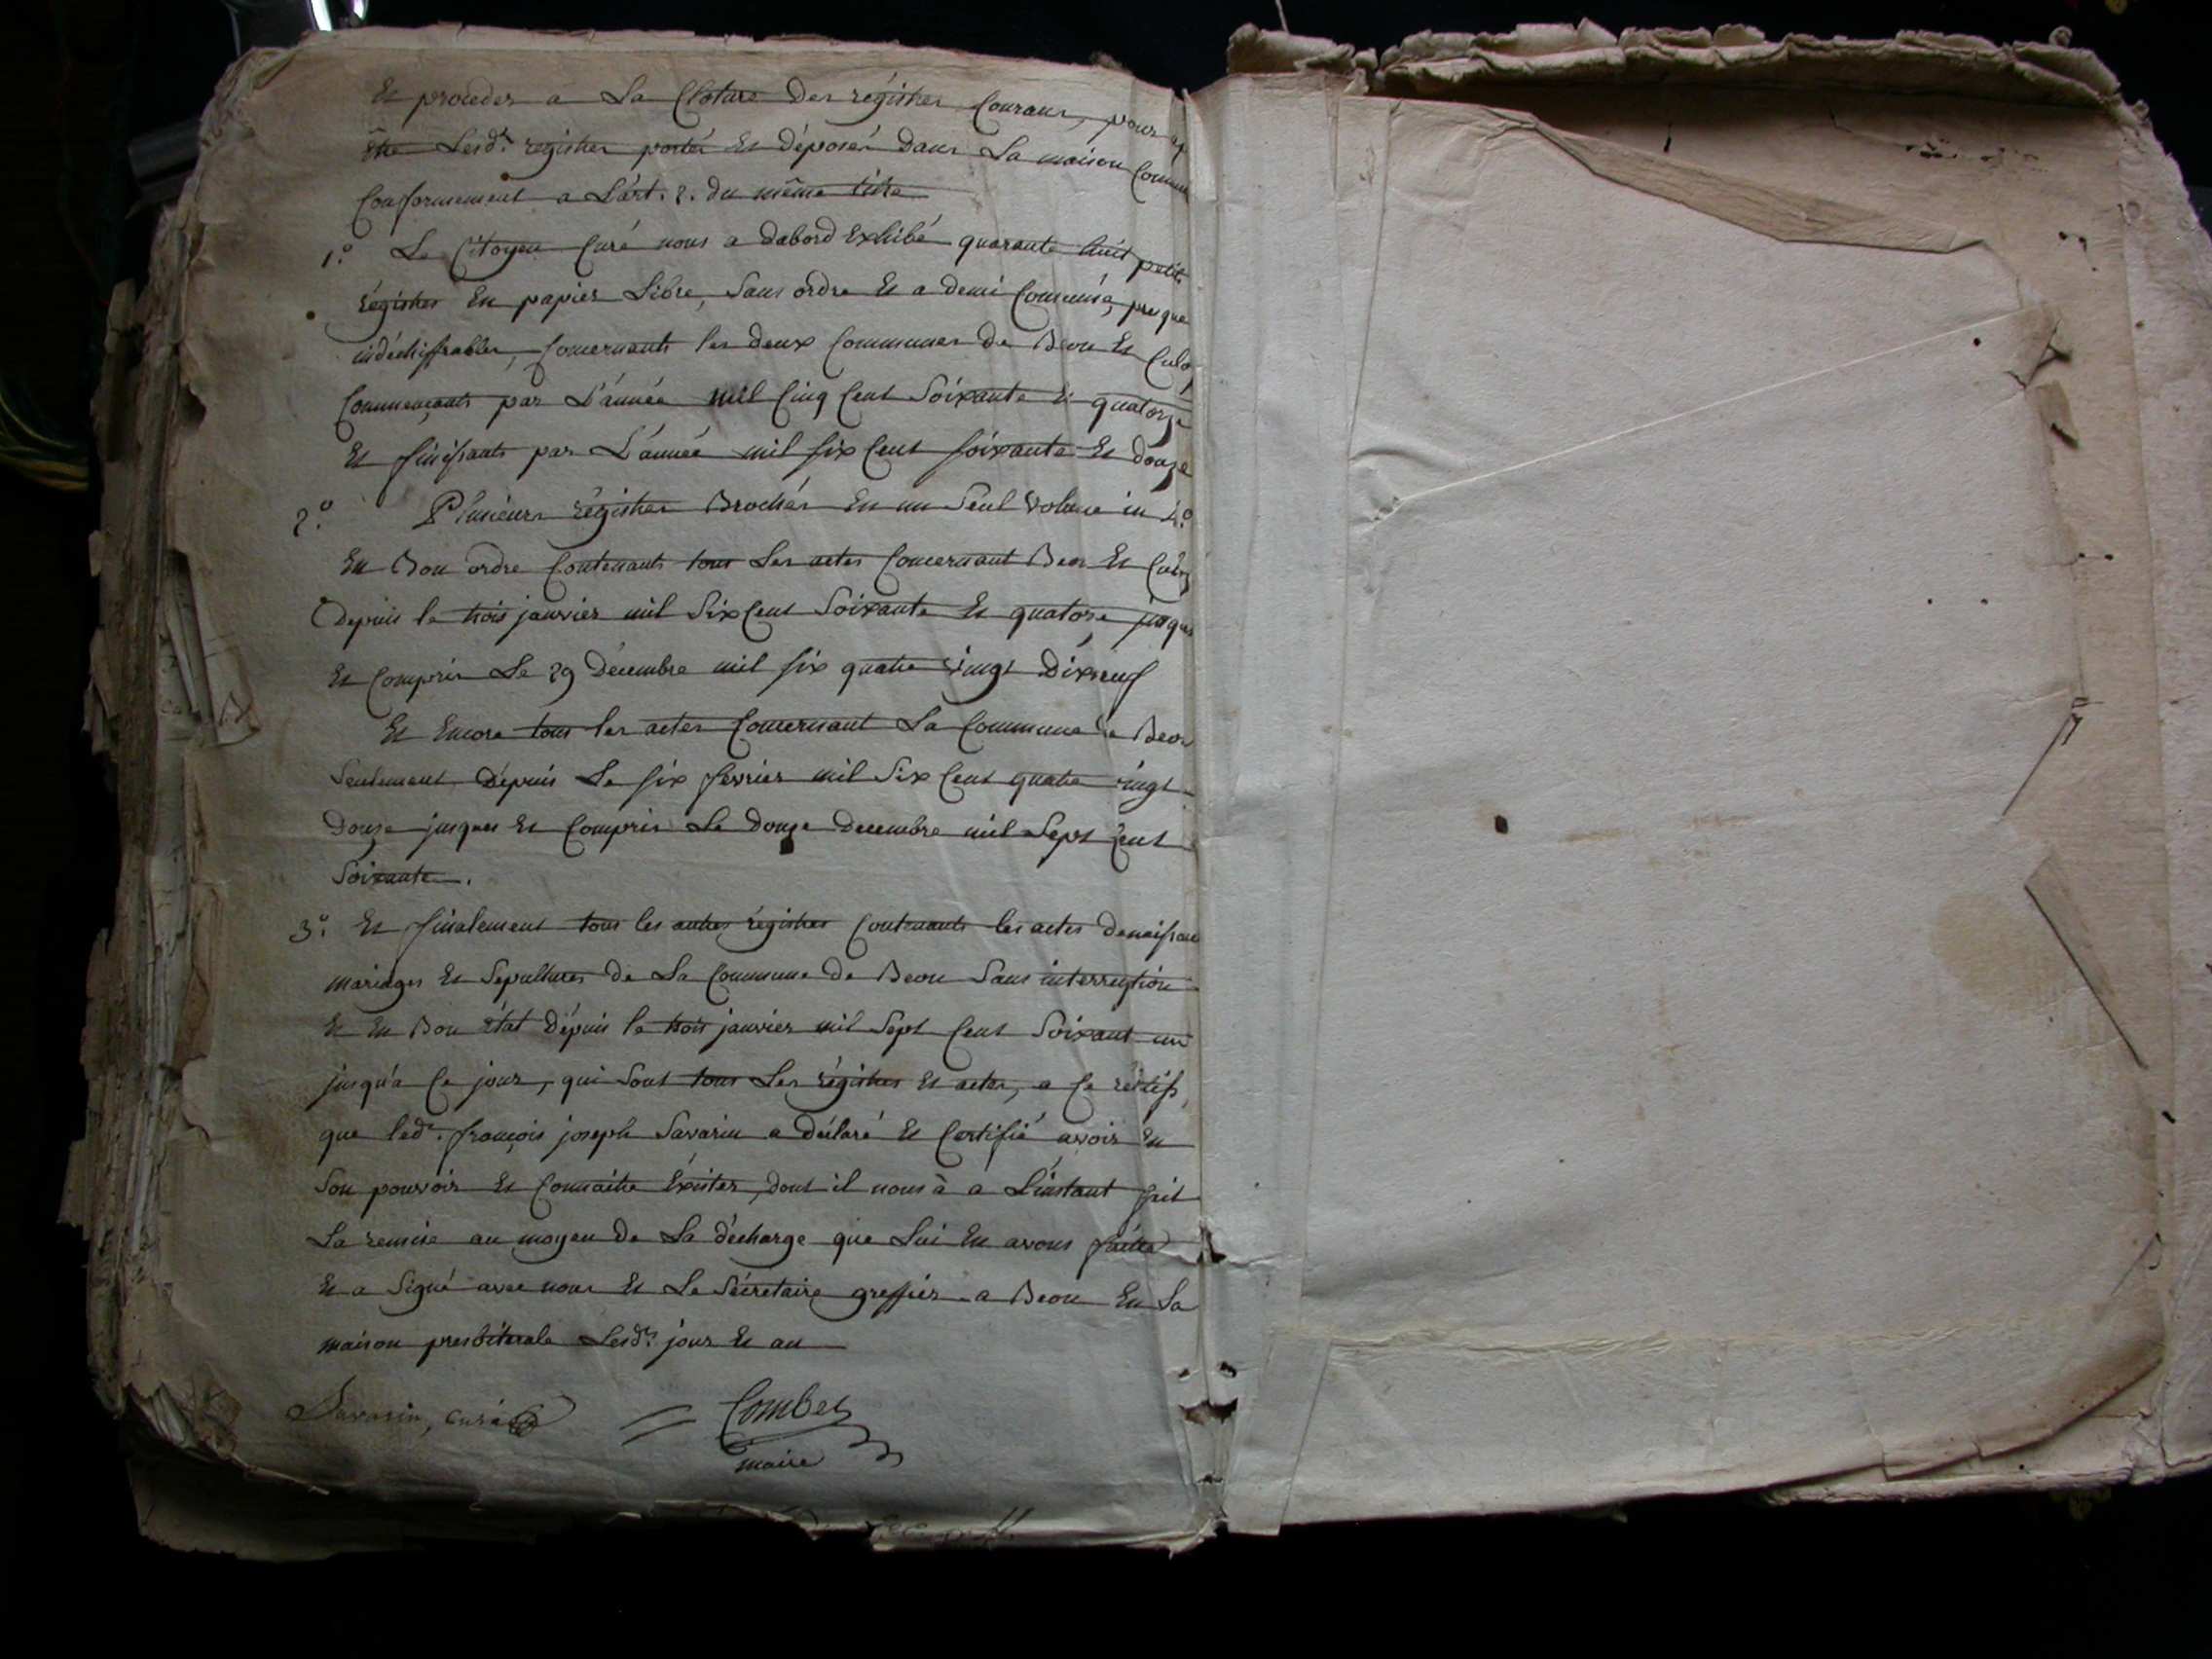 Et proceder a La Cloture Des régistres Courans, pour
être Lesd.s registres portés Et déposés Dans La maison Commune
Conformement a L'art. 2. du même titre
1.° Le Citoyen Curé nous a dabord Exhibé quarante huit petits
régistres En papier Libre, Sans ordre Et a demi Consumés, presque
indéchiffrables, Concernants les deux Communes De Beon Et Culoz
Commençants par L'année mil Cinq Cent Soixante Et quatorze
Et finissants par L'année mil six Cent soixante Et douze
2.° Plusieurs régistres Brochés En un Seul Volume in 4.°
En Bon ordre Contenants tous Les actes Concernant Beon Et Culoz
Depuis le trois janvier mil Six Cent Soixante Et quatorze jusques
Et Compris Le 29 Décembre mil six quatre vingt Dixneuf
Et Encore tous les actes Concernant La Commune de Beon
Seulement Depuis Le six fevrier mil Six Cent quatre vingt
Douze jusques Et Compris Le douze Decembre mil Sept Cent
Soixante.
3.° Et finalement tous les autres régistres Contenants les actes de naissance
mariages Et Sepultures de La Commune de Beon Sans interruption
Et En Bon état Dépuis le trois janvier mil Sept Cent Soixant un
jusqu'a Ce jour, qui Sont tous Les régistres Et actes, a Ce rélatifs,
que led.t françois joseph Savarin a déclaré Et Certifié avoir En
Son pouvoir Et Connaitre Exister, dont il nous à a L'instant fait
La remise au moyen de La décharge que Lui En avons faitte
Et a Signé avec nous Et Le Sécretaire greffier a Beon En La
maison presbiterale Lesd.ts jour Et an
Savarin, curé = Combet
maire